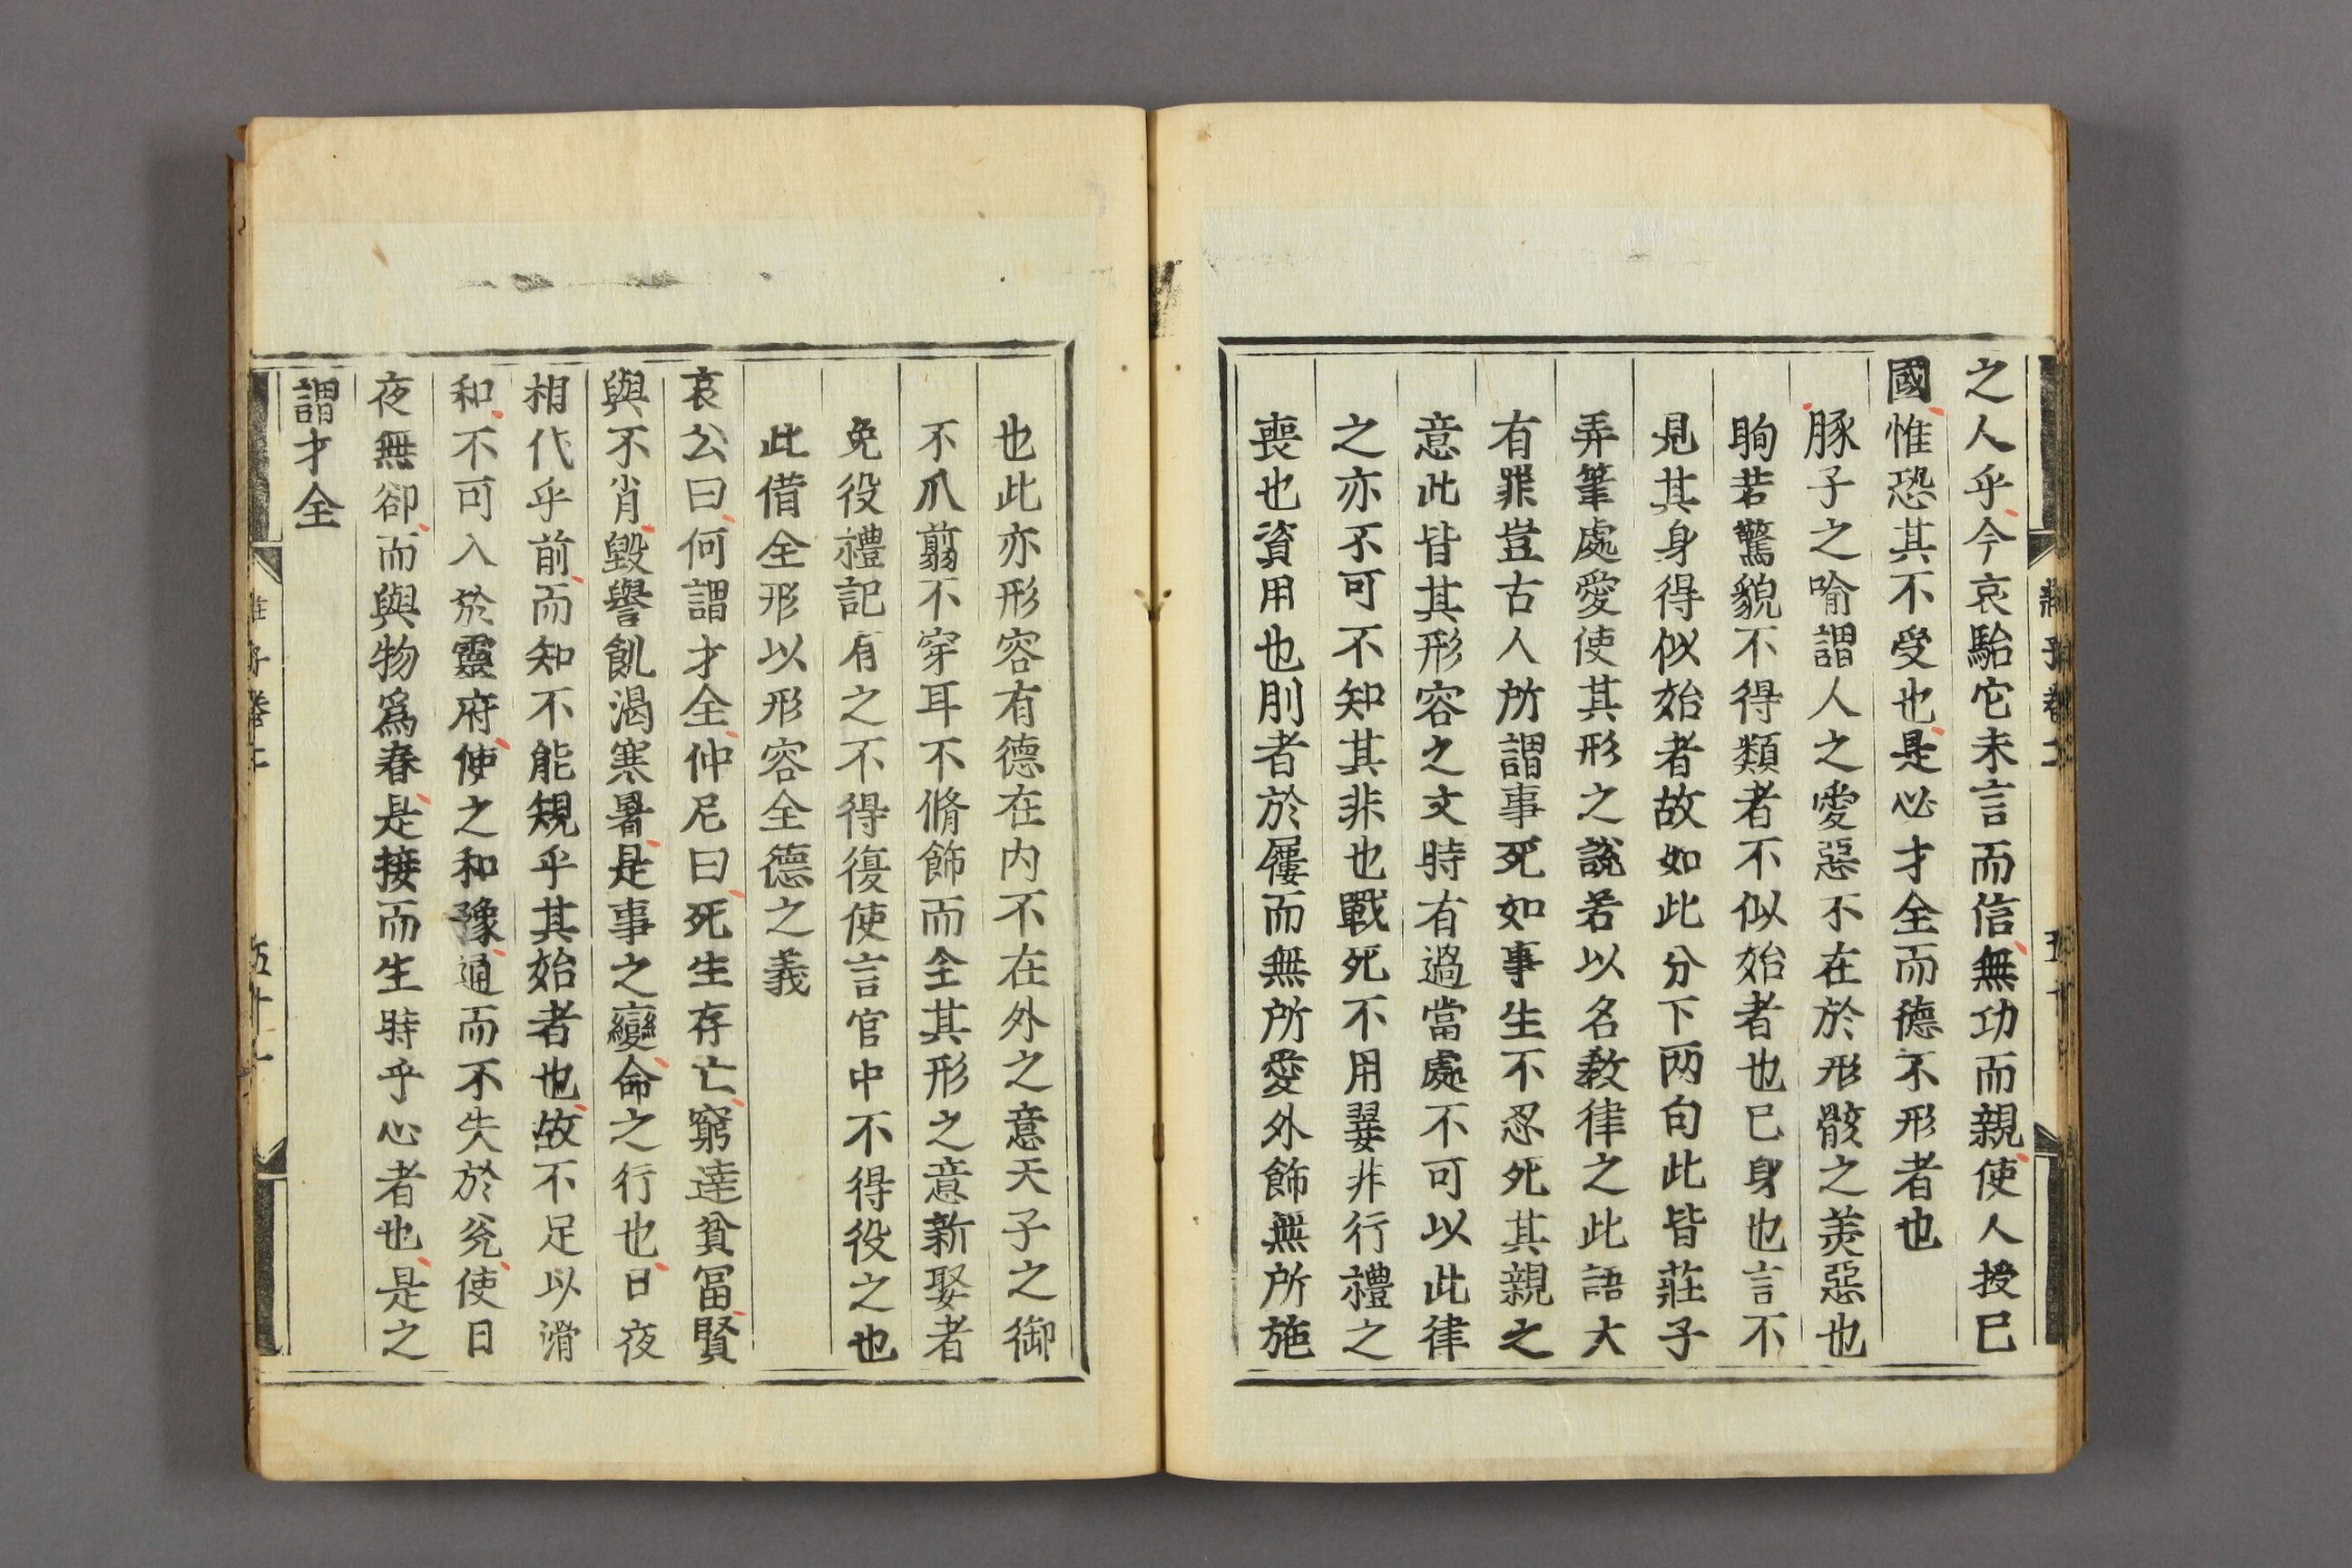 之人乎今哀駘它未言而信無功而親使人授已
國惟恐其不受也是必才全而德不形者也
豚子之喻謂人之愛惡不在於形骸之羙惡也
眴若驚貌不得類者不似始者也已身也言不
見其身得似始者故如此分下两句此皆莊子
弄筆處愛使其形之說若以名教律之此語大
有罪豈古人所謂事死如事生不忍死其親之
意此皆其形容之文時有過當處不可以此律
之亦不可不知其非也戰死不用翣非行禮之
喪也資用也刖者於屨而無所愛外飾無所施
也此亦形容有德在内不在外之意天子之御
不爪翦不穿耳不脩飾而全其形之意新娶者
免役禮記有之不得復使言官中不得役之也
此借全形以形容全德之義
哀公曰何謂才全仲尼曰死生存亡窮達貧冨賢
與不肖毀譽飢渴寒暑是事之變命之行也日夜
相代乎前而知不能規乎其始者也故不足以滑
和不可入於靈府使之和豫通而不失於兌使日
夜無郤而與物為春是接而生時乎心者也是之
謂才全